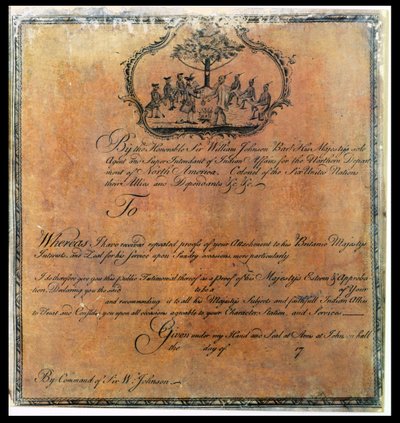 By the Honorable Sir William Johnson Bart. His Majesty's sole
Agent and Super Intendant of Indian Affairs for the Northern Depart
ment of North America, Colonel of the Six United Nations
their Allies and Dependants &c. &c.
To
Whereas I have received repeated proofs of your Attachment to his Britanic Majestys
Interests, and Zeal for his service upon Sundry occasions, more particularly
I do therefore give you this public Testimonial thereof as a proof of his Majesty's Esteem & Approba
tion, Declaring you the said to be a of Your
and recommending it to all his Majesty's Subjects and faithfull Indian Allies
to Treat and Consider you upon all occasions agreable to your Character, Station, and Services
Given under my Hand and Seal at Arms at Johnson hall
the day of 17
By Command of Sir W: Johnson